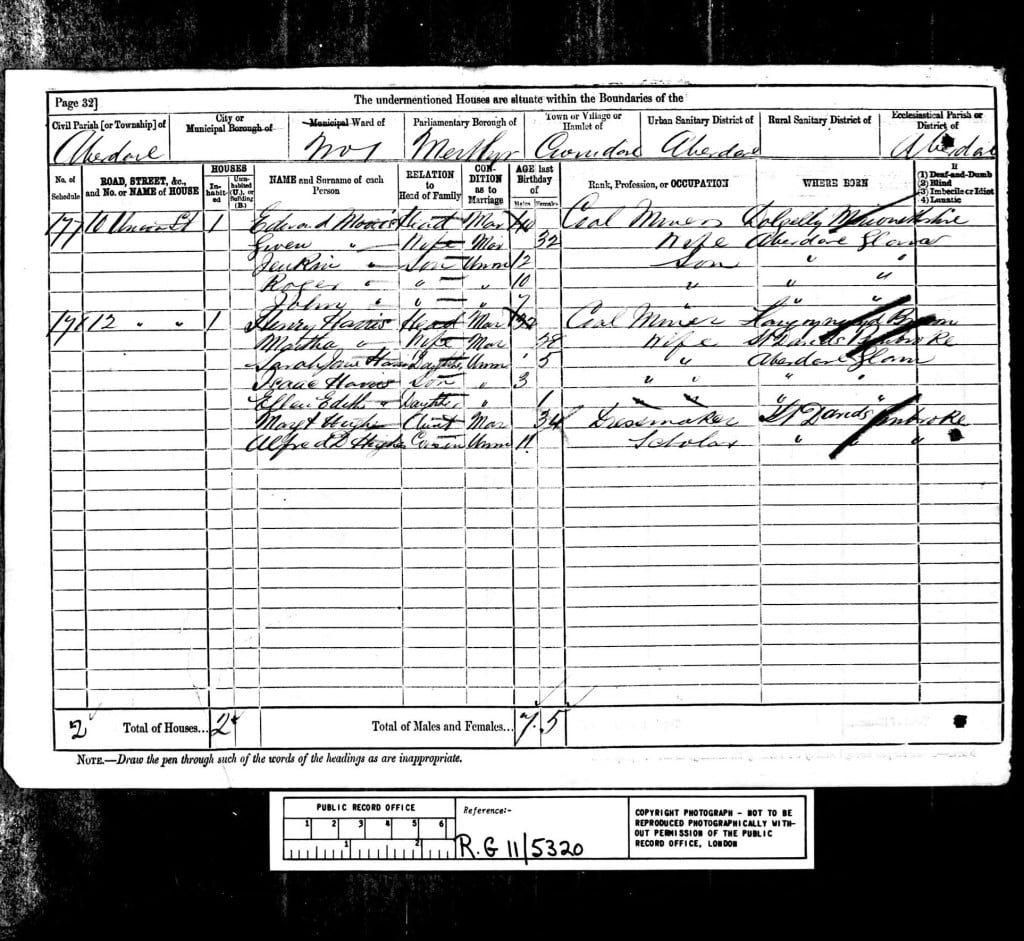 Page 32]
The undermentioned Houses are situate within the Boundaries of the
Civil Parish [or Township] of
City or Municipal Borough of
Municipal Ward of
Parliamentary Borough of
Town or Village or Hamlet of
Urban Sanitary District of
Rural Sanitary District of
Ecclesiastical Parish or District of
Aberdare No 1 Merthyr Aberdare Aberdare
No. of Schedule
ROAD, STREET, &c., and No. or NAME of HOUSE
HOUSES
Inhabited
Uninhabited (U.), or Building (B.)
NAME and Surname of each Person
RELATION to Head of Family
CONDITION as to Marriage
AGE last Birthday of
Males
Females
Rank, Profession, or OCCUPATION
WHERE BORN
If
(1) Deaf-and-Dumb
(2) Blind
(3) Imbecile or Idiot
(4) Lunatic
177 10 Union St 1 Edward Head Mar 40 Coal Miner Dolgelly
Gwen " Wife Mar 32 Wife Aberdare Glam
Jenkin " Son Unm 12 Son " "
Roger " " " 10 " " "
John " " " 7 " " "
178 12 " " 1 Henry Harris Head Mar Coal Miner
Martha " Wife Mar 28 Wife St Davids Pembroke
Sarah Jane Daughter Unm 5 " Aberdare Glam
Isaac Harris Son " 3 " " " "
Ellen Edith " Daughter " 1 " " "
Margt Aunt Mar 34 Dressmaker St Davids Pembroke
Alfred D Cousin Unm 11 Scholar " " "
2 Total of Houses... 2
Total of Males and Females... 7 5
NOTE.—Draw the pen through such of the words of the headings as are inappropriate.
PUBLIC RECORD OFFICE
1 2 3 4 5 6
1 2
Reference:-
R.G 11/5320
COPYRIGHT PHOTOGRAPH - NOT TO BE
REPRODUCED PHOTOGRAPHICALLY WITH-
OUT PERMISSION OF THE PUBLIC
RECORD OFFICE, LONDON